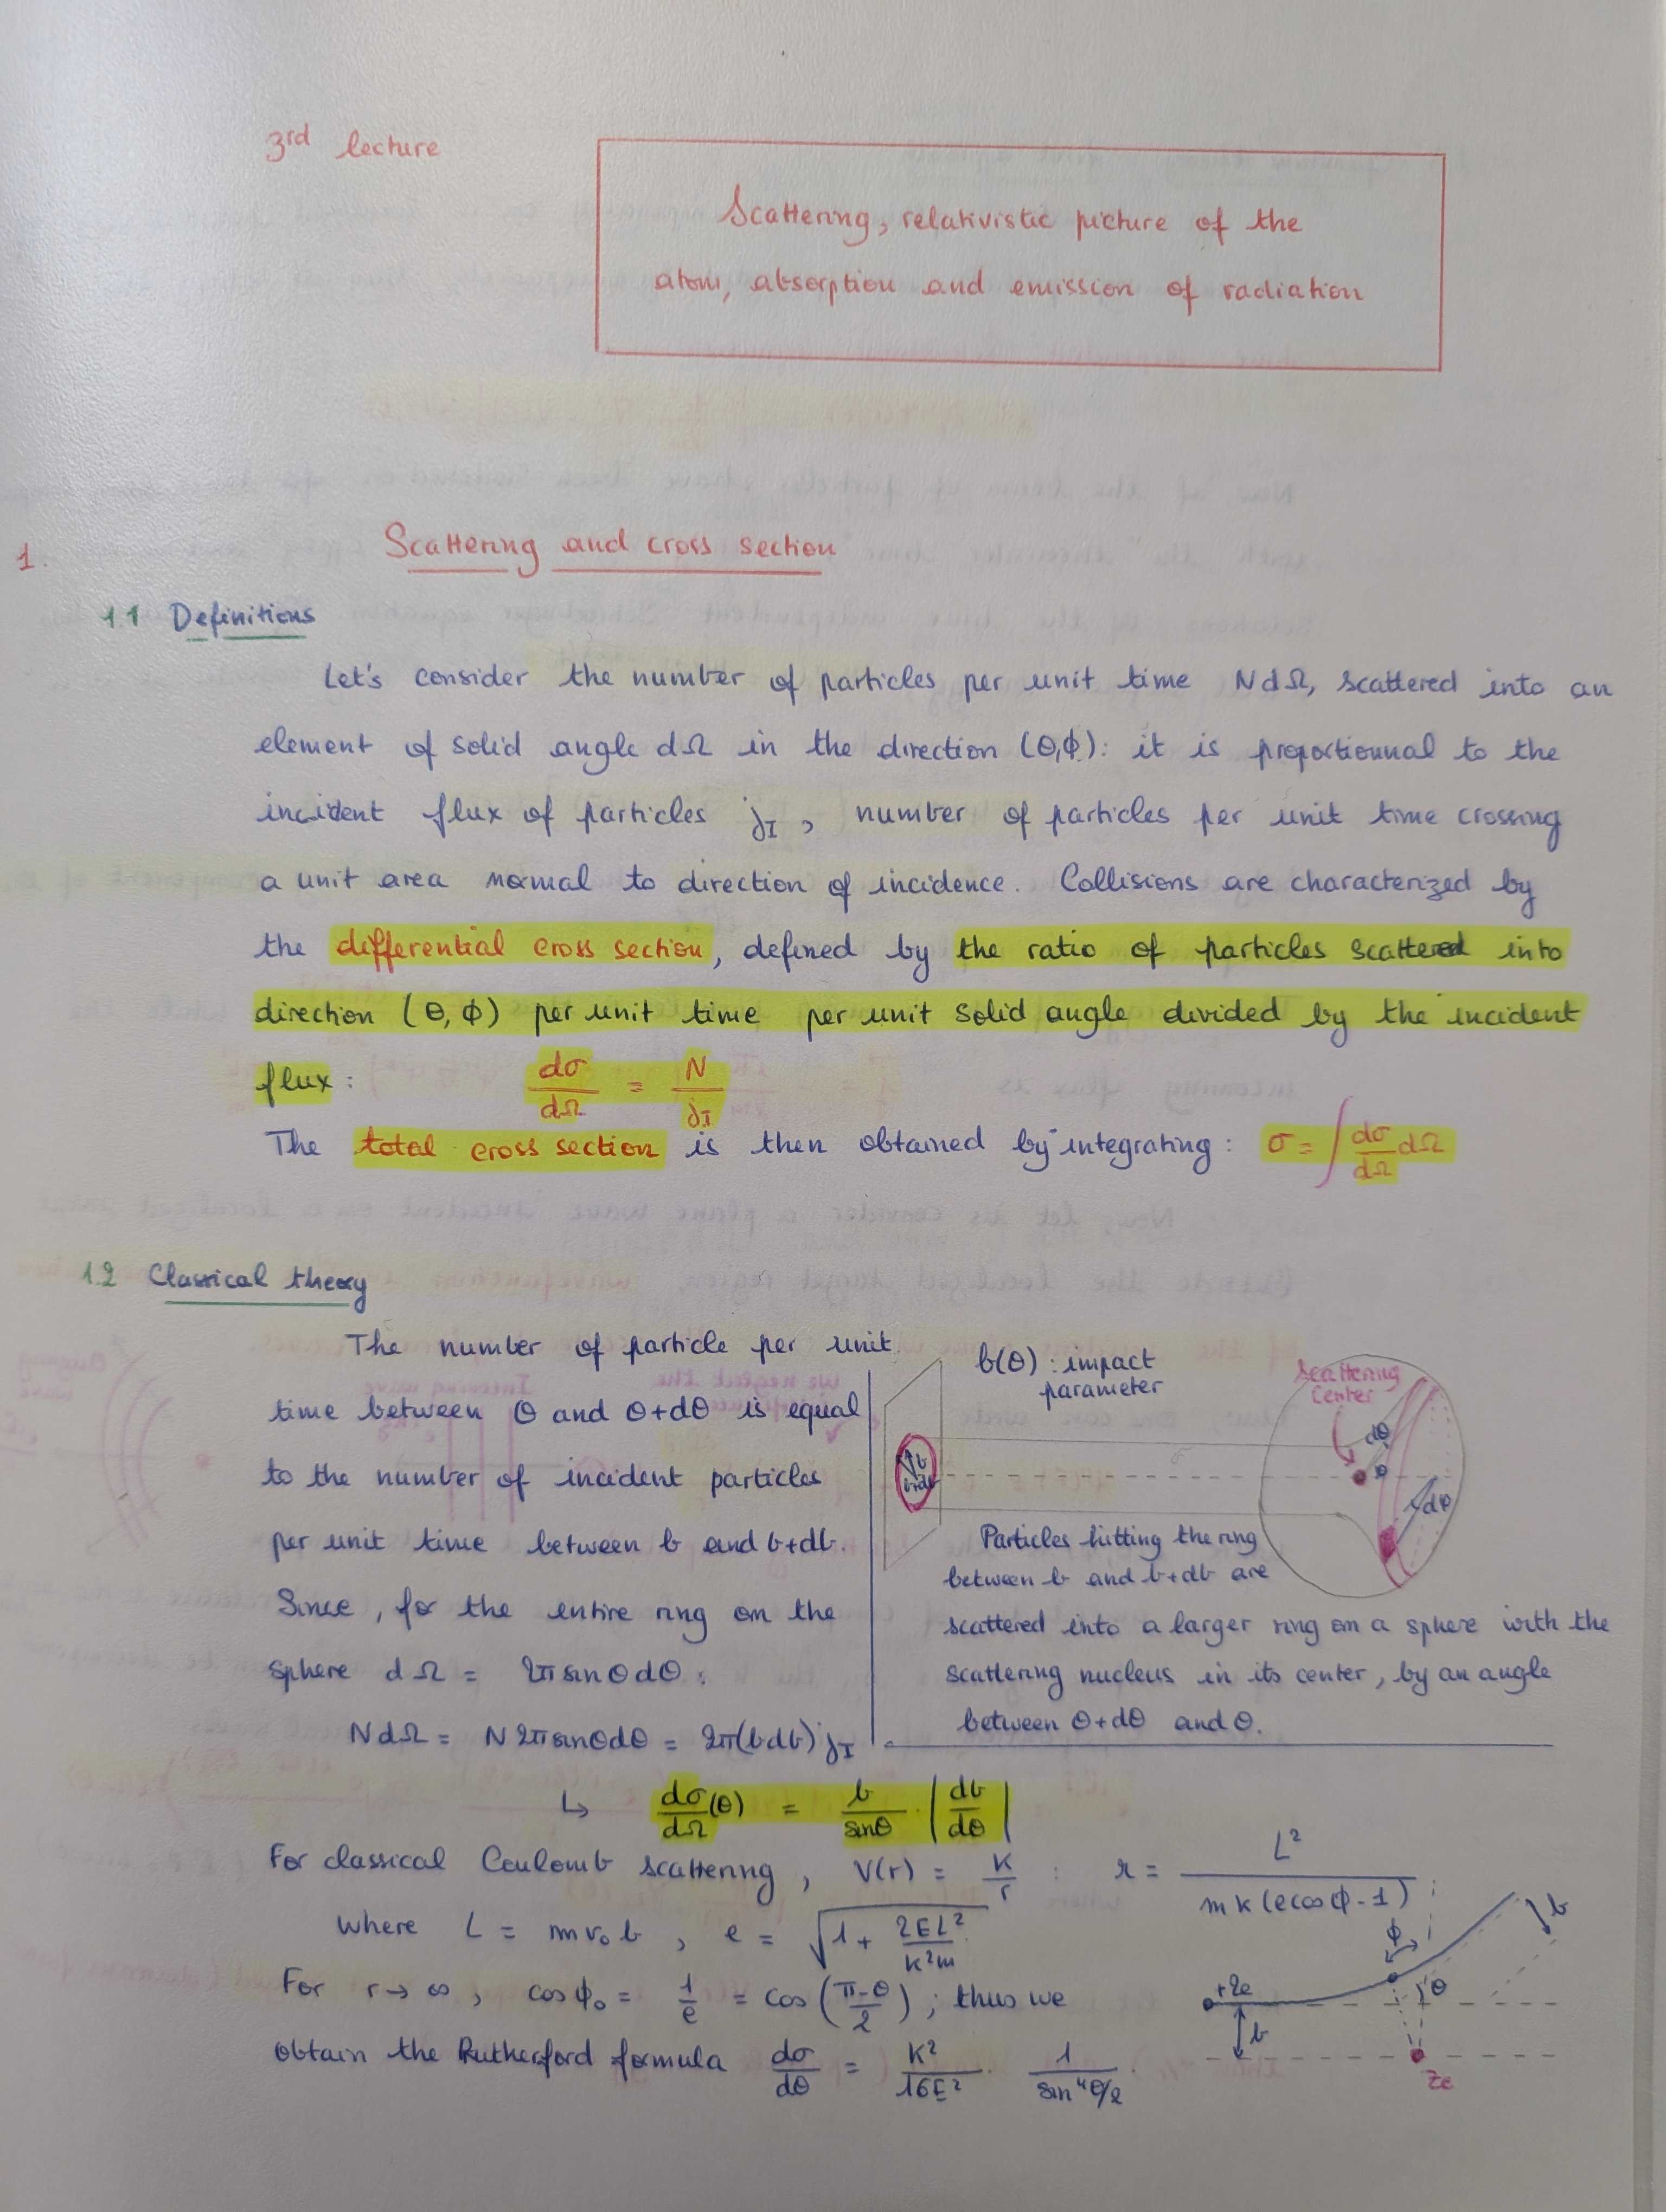 3rd lecture
Scattering, relativistic picture of the
atom, absorption and emission of radiation
1. Scattering and cross section
1.1 Definitions
Let's consider the number of particles per unit time NdΩ, scattered into an
element of solid angle dΩ in the direction (θ,ϕ): it is proportionnal to the
incident flux of particles j_I, number of particles per unit time crossing
a unit area normal to direction of incidence. Collisions are characterized by
the differential cross section, defined by the ratio of particles scattered into
direction (θ, ϕ) per unit time per unit solid angle divided by the incident
flux: dσ/dΩ = N/j_I
The total cross section is then obtained by integrating: σ = ∫ dσ/dΩ dΩ
1.2 Classical theory
The number of particle per unit
time between θ and θ+dθ is equal
to the number of incident particles
per unit time between b and b+db.
Since, for the entire ring on the
sphere dΩ = 2π sinθdθ:
NdΩ = N 2π sinθdθ = 2π(bdb) j_I
b(θ): impact
parameter
Scattering
Center
dθ
θ
dφ
b
b+db
Particles hitting the ring
between b and b+db are
scattered into a larger ring on a sphere with the
scattering nucleus in its center, by an angle
between θ+dθ and θ.
↳ dσ/dΩ (θ) = b/sinθ · |db/dθ|
For classical Coulomb scattering, V(r) = K/r : r = L²/(mk(ecosϕ-1))
where L = mv₀b, e = √(1 + 2EL²/(k²m))
For r → ∞, cosϕ₀ = 1/e = cos((π-θ)/2); thus we
obtain the Rutherford formula dσ/dθ = K²/16E² · 1/sin⁴θ/2.
ϕ
b
+2e
θ
b
Ze